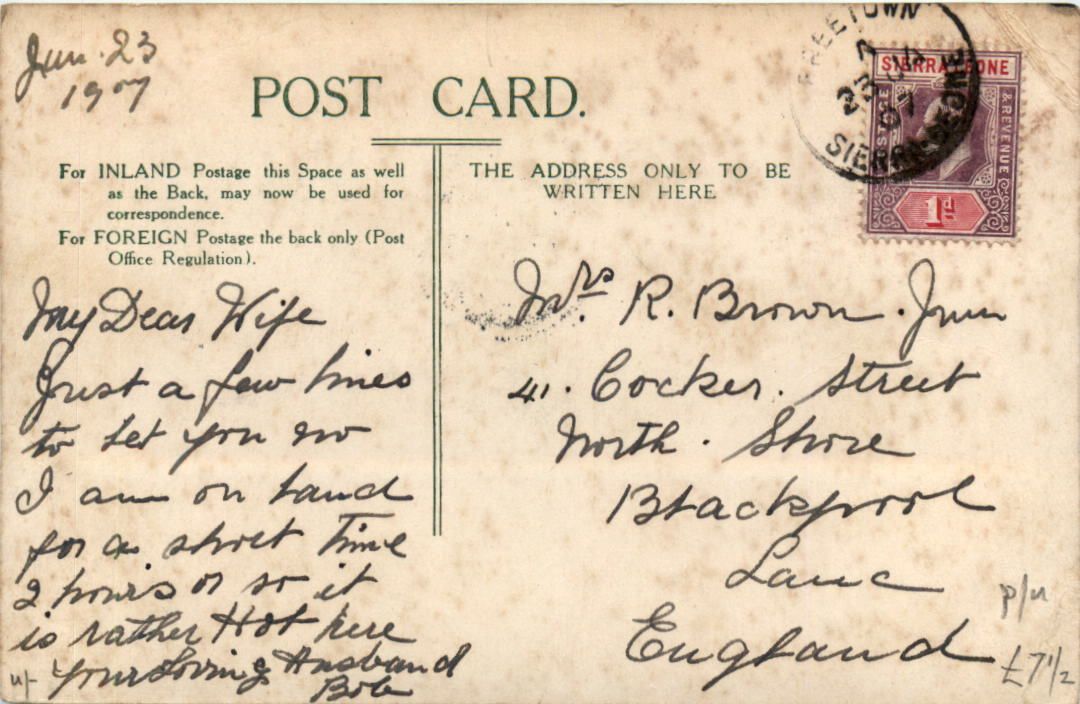 Jun. 23
1907
POST CARD.
For INLAND Postage this Space as well
as the Back, may now be used for
correspondence.
For FOREIGN Postage the back only (Post
Office Regulation).
THE ADDRESS ONLY TO BE
WRITTEN HERE
FREETOWN
SIERRA LEONE
SIERRA LEONE
POSTAGE
& REVENUE
1d
My Dear Wife
Just a few lines
to let you no
I am on land
for a short time
2 hours or so it
is rather Hot here
your Loving Husband
Bob
Mrs. R. Brown. Jun
41. Cocker. Street
North. Shore
Blackpool
Lanc
England
p/u
£7½